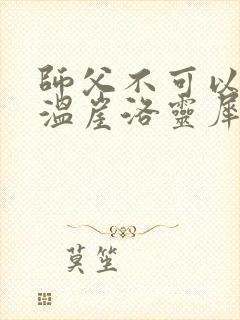 師父不可以
溫崖洛靈犀
莫笙